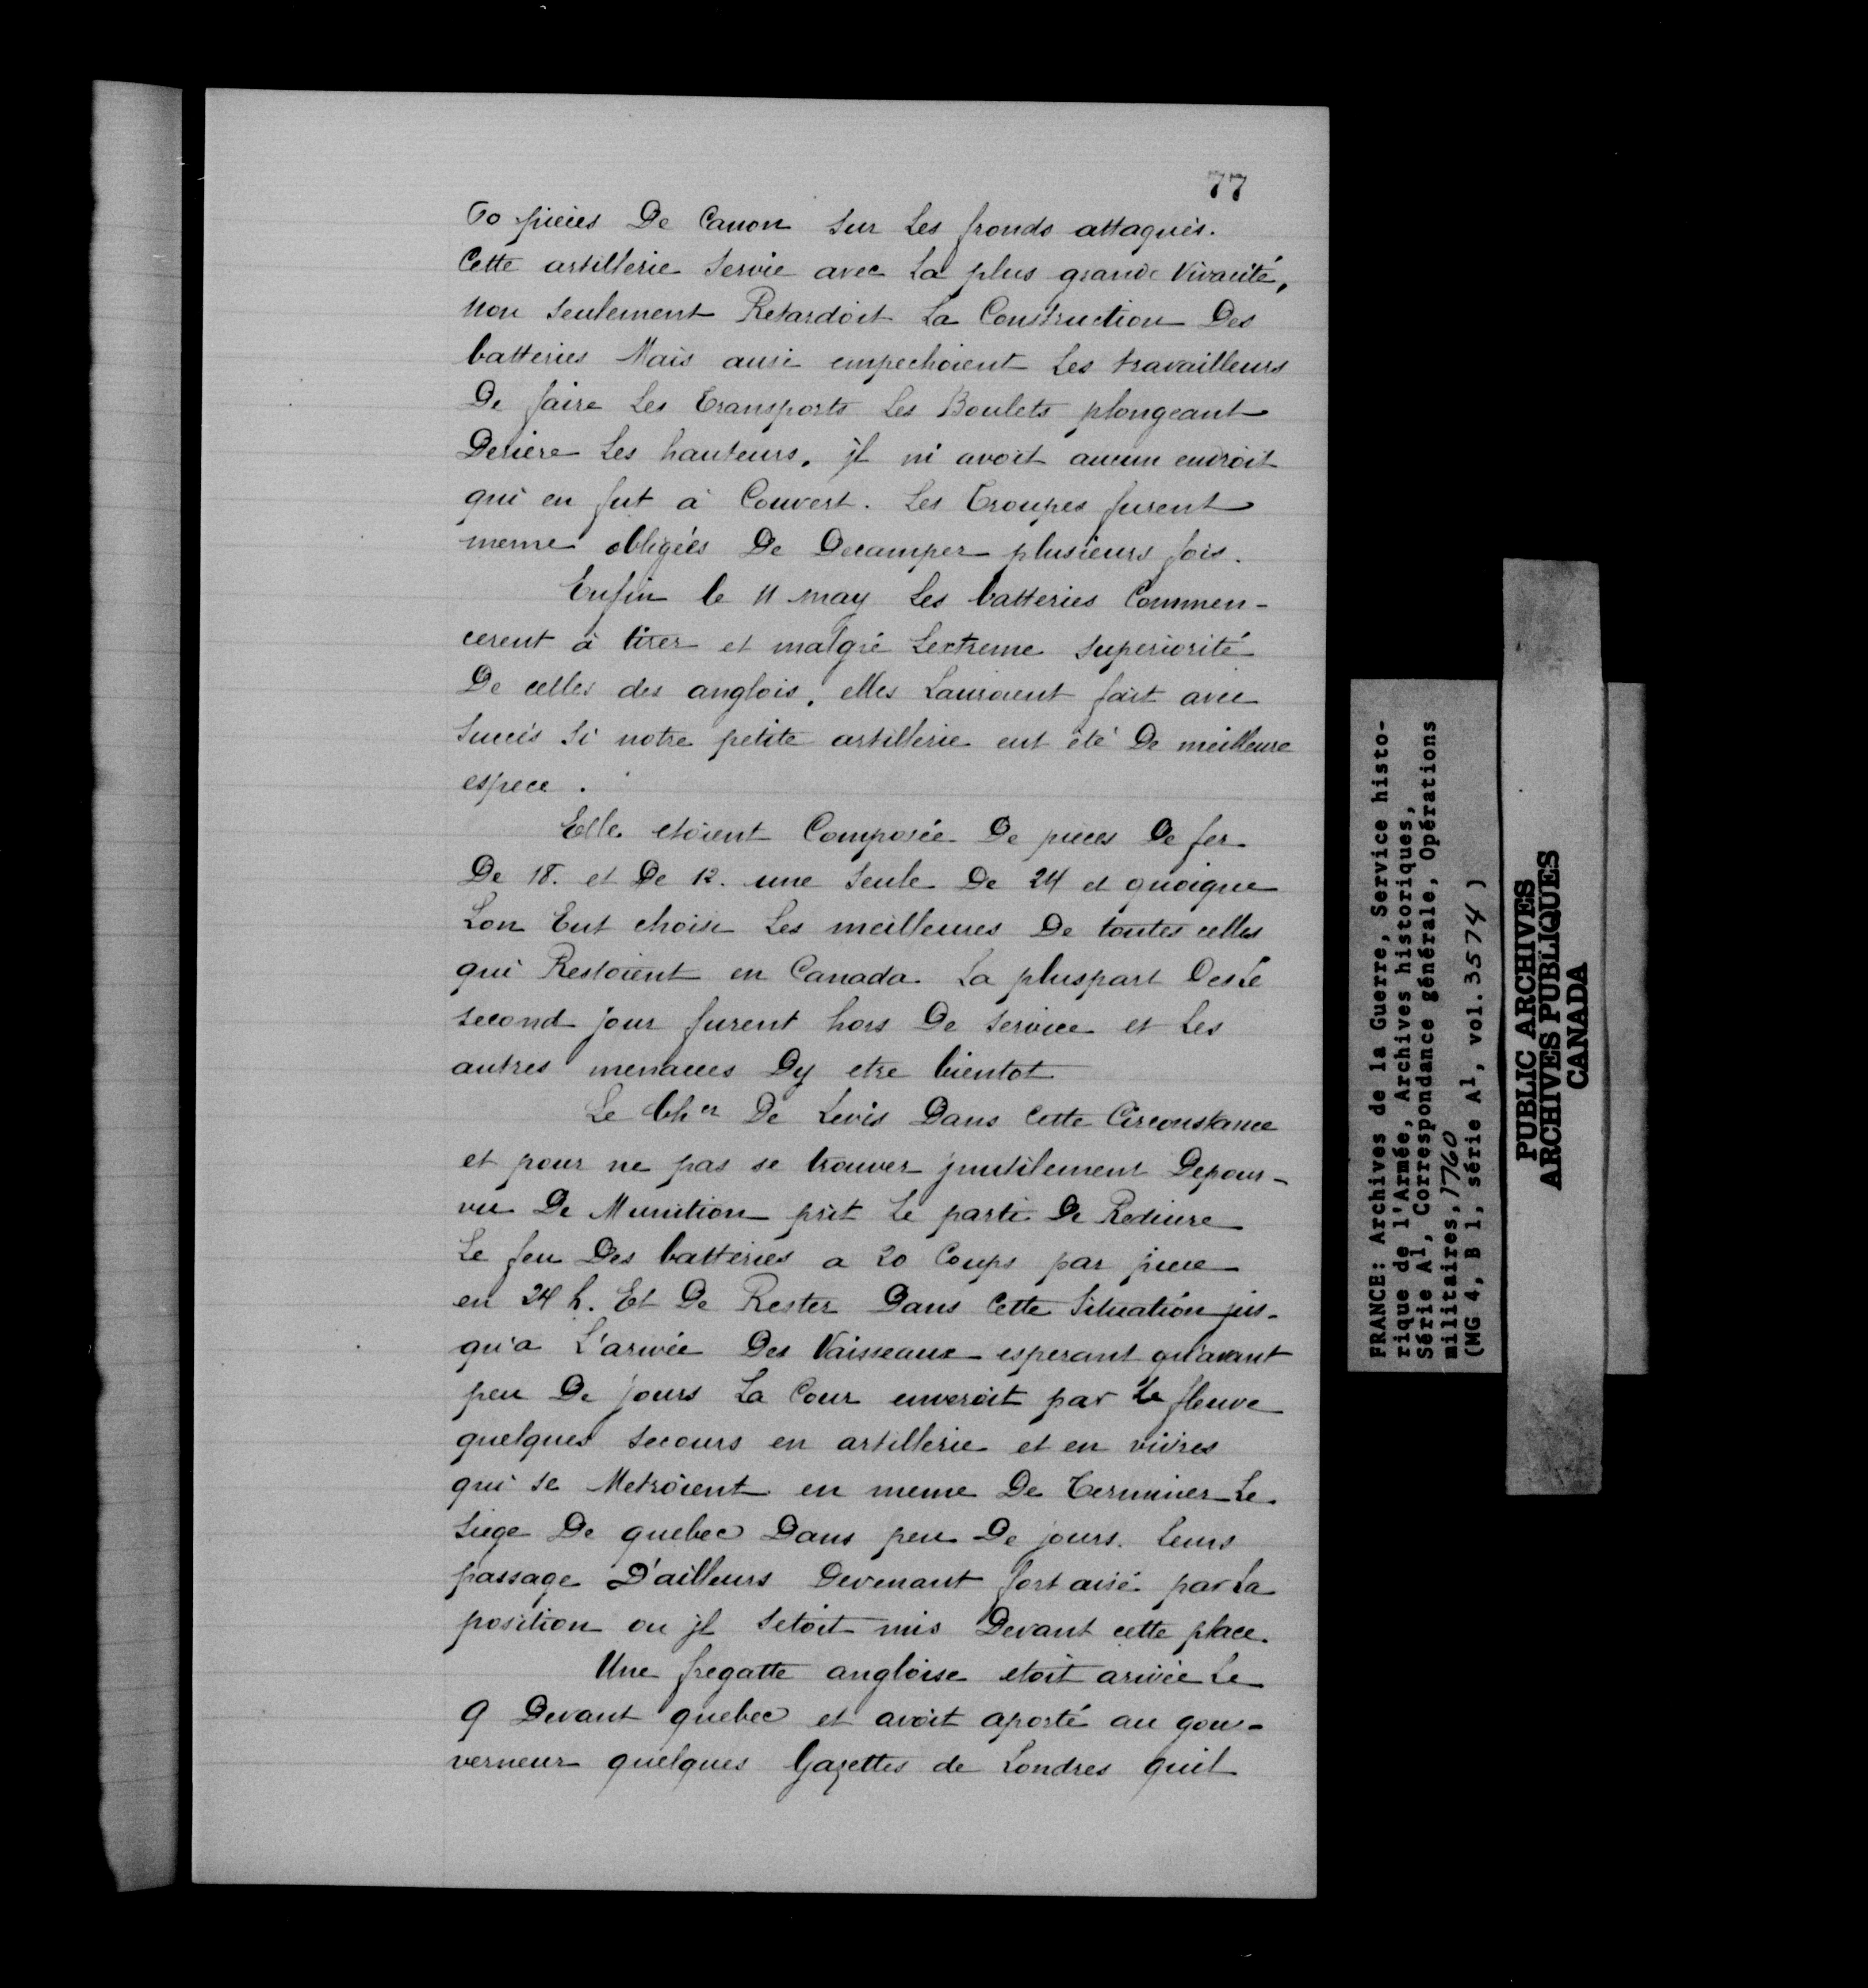 77
60 pièces De Canon Sur Les fronds attaqués.
Cette artillerie Servie avec La plus grande Vivacité,
Non Seulement Retardoit La Construction Des
batteries Mais ausi empechoient Les travailleurs
De faire Les Transports Les Boulets plongeant
Deriere Les hauteurs. jl ni avoit aucun endroit
qui en fut à Couvert. Les Troupes furent
meme obligées De Decamper plusieurs fois.
Enfin le 11 may Les batteries Commen-
cerent à tirer et malgré Lextreme Superiorité
De celles des anglois. elles Lauroient fait avec
Succès Si notre petite artillerie eut été De meilleure
espece.
Elle etoient Composée De pieces De fer
De 18. et De 12. une Seule De 24 et quoique
Lon Eut choisi Les meilleures De toutes celles
qui Restoient en Canada. La pluspart Des Le
second jour furent hors De Service et Les
autres menacees Dy etre bientot
Le Cher De Levis Dans Cette Circonstance
et pour ne pas se trouver jnutilement Depour-
vu De Munition prit Le parti De Reduire
Le feu Des batteries a 20 Coups par piece
en 24 h. Et De Rester Dans Cette Situation jus-
qu'a L'arivée Des Vaisseaux esperant qu'avant
peu De jours La Cour enveroit par Le fleuve
quelques Secours en artillerie et en vivres
qui Se Metroient en meme De Terminer Le
Siege De quebec Dans peu De jours. Leurs
passage D'ailleurs Devenant fort aisé par La
position ou jl Setoit mis Devant cette place.
Une fregatte angloise etoit arivée Le
9 Devant quebec et avoit aporté au gou-
verneur quelques Gazettes de Londres quil
FRANCE: Archives de la Guerre, Service histo-
rique de l'Armée, Archives historiques,
Série A1, Correspondance générale, Opérations
militaires, 1760
(MG 4, B 1, série A1, vol. 3574)
PUBLIC ARCHIVES
ARCHIVES PUBLIQUES
CANADA